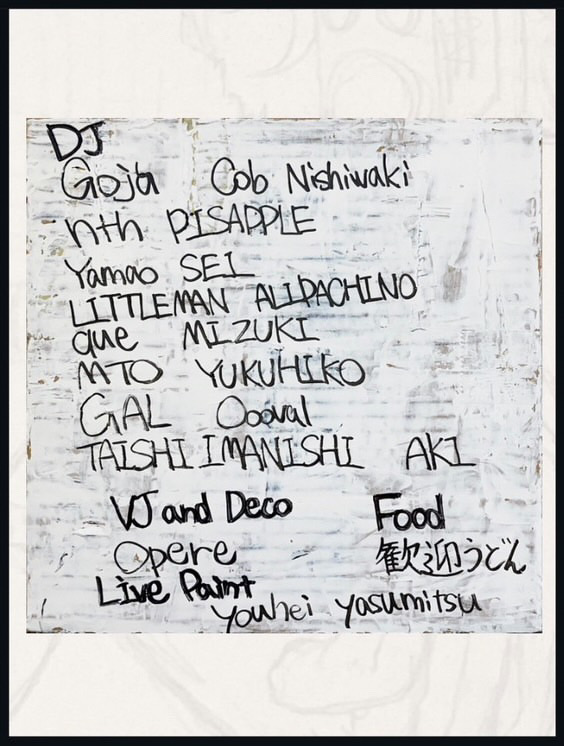 DJ
Goja Cob Nishiwaki
nth PISAPPLE
Yamao SEI
LITTLEMAN ALIPACHINO
que MIZUKI
MTO YUKUHIKO
GAL Oooval
TAISHI IMANISHI AKI
VJ and Deco Food
Opere 歓迎うどん
Live Paint
Youhei Yasumitsu